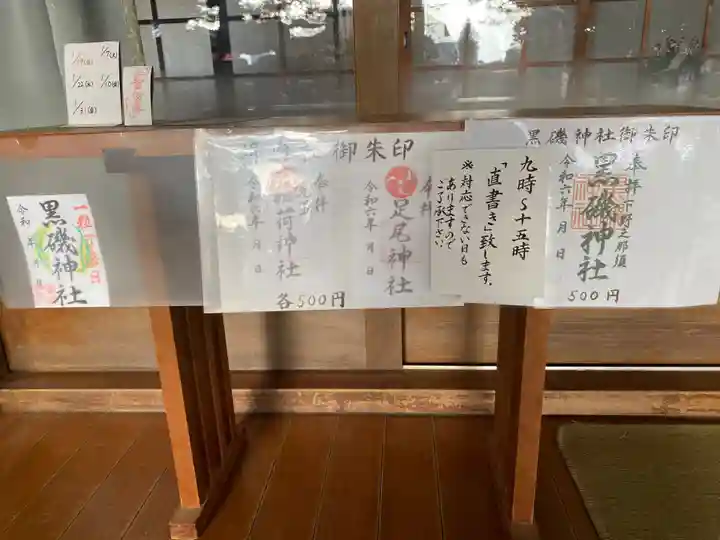 1/7(火)
1/22(水)
1/31(金)
一粒万倍日
黒磯神社
令和 年 月 日
御朱印
稲荷神社
令和六年 月 日
奉拝
足尾神社
令和六年 月 日
各500円
九時~十五時
「直書き」致します。
※対応できない日も
ありますので
ご了承下さい
黒磯神社御朱印
奉拝 下野之那須
黒磯神社
令和六年 月 日
500円